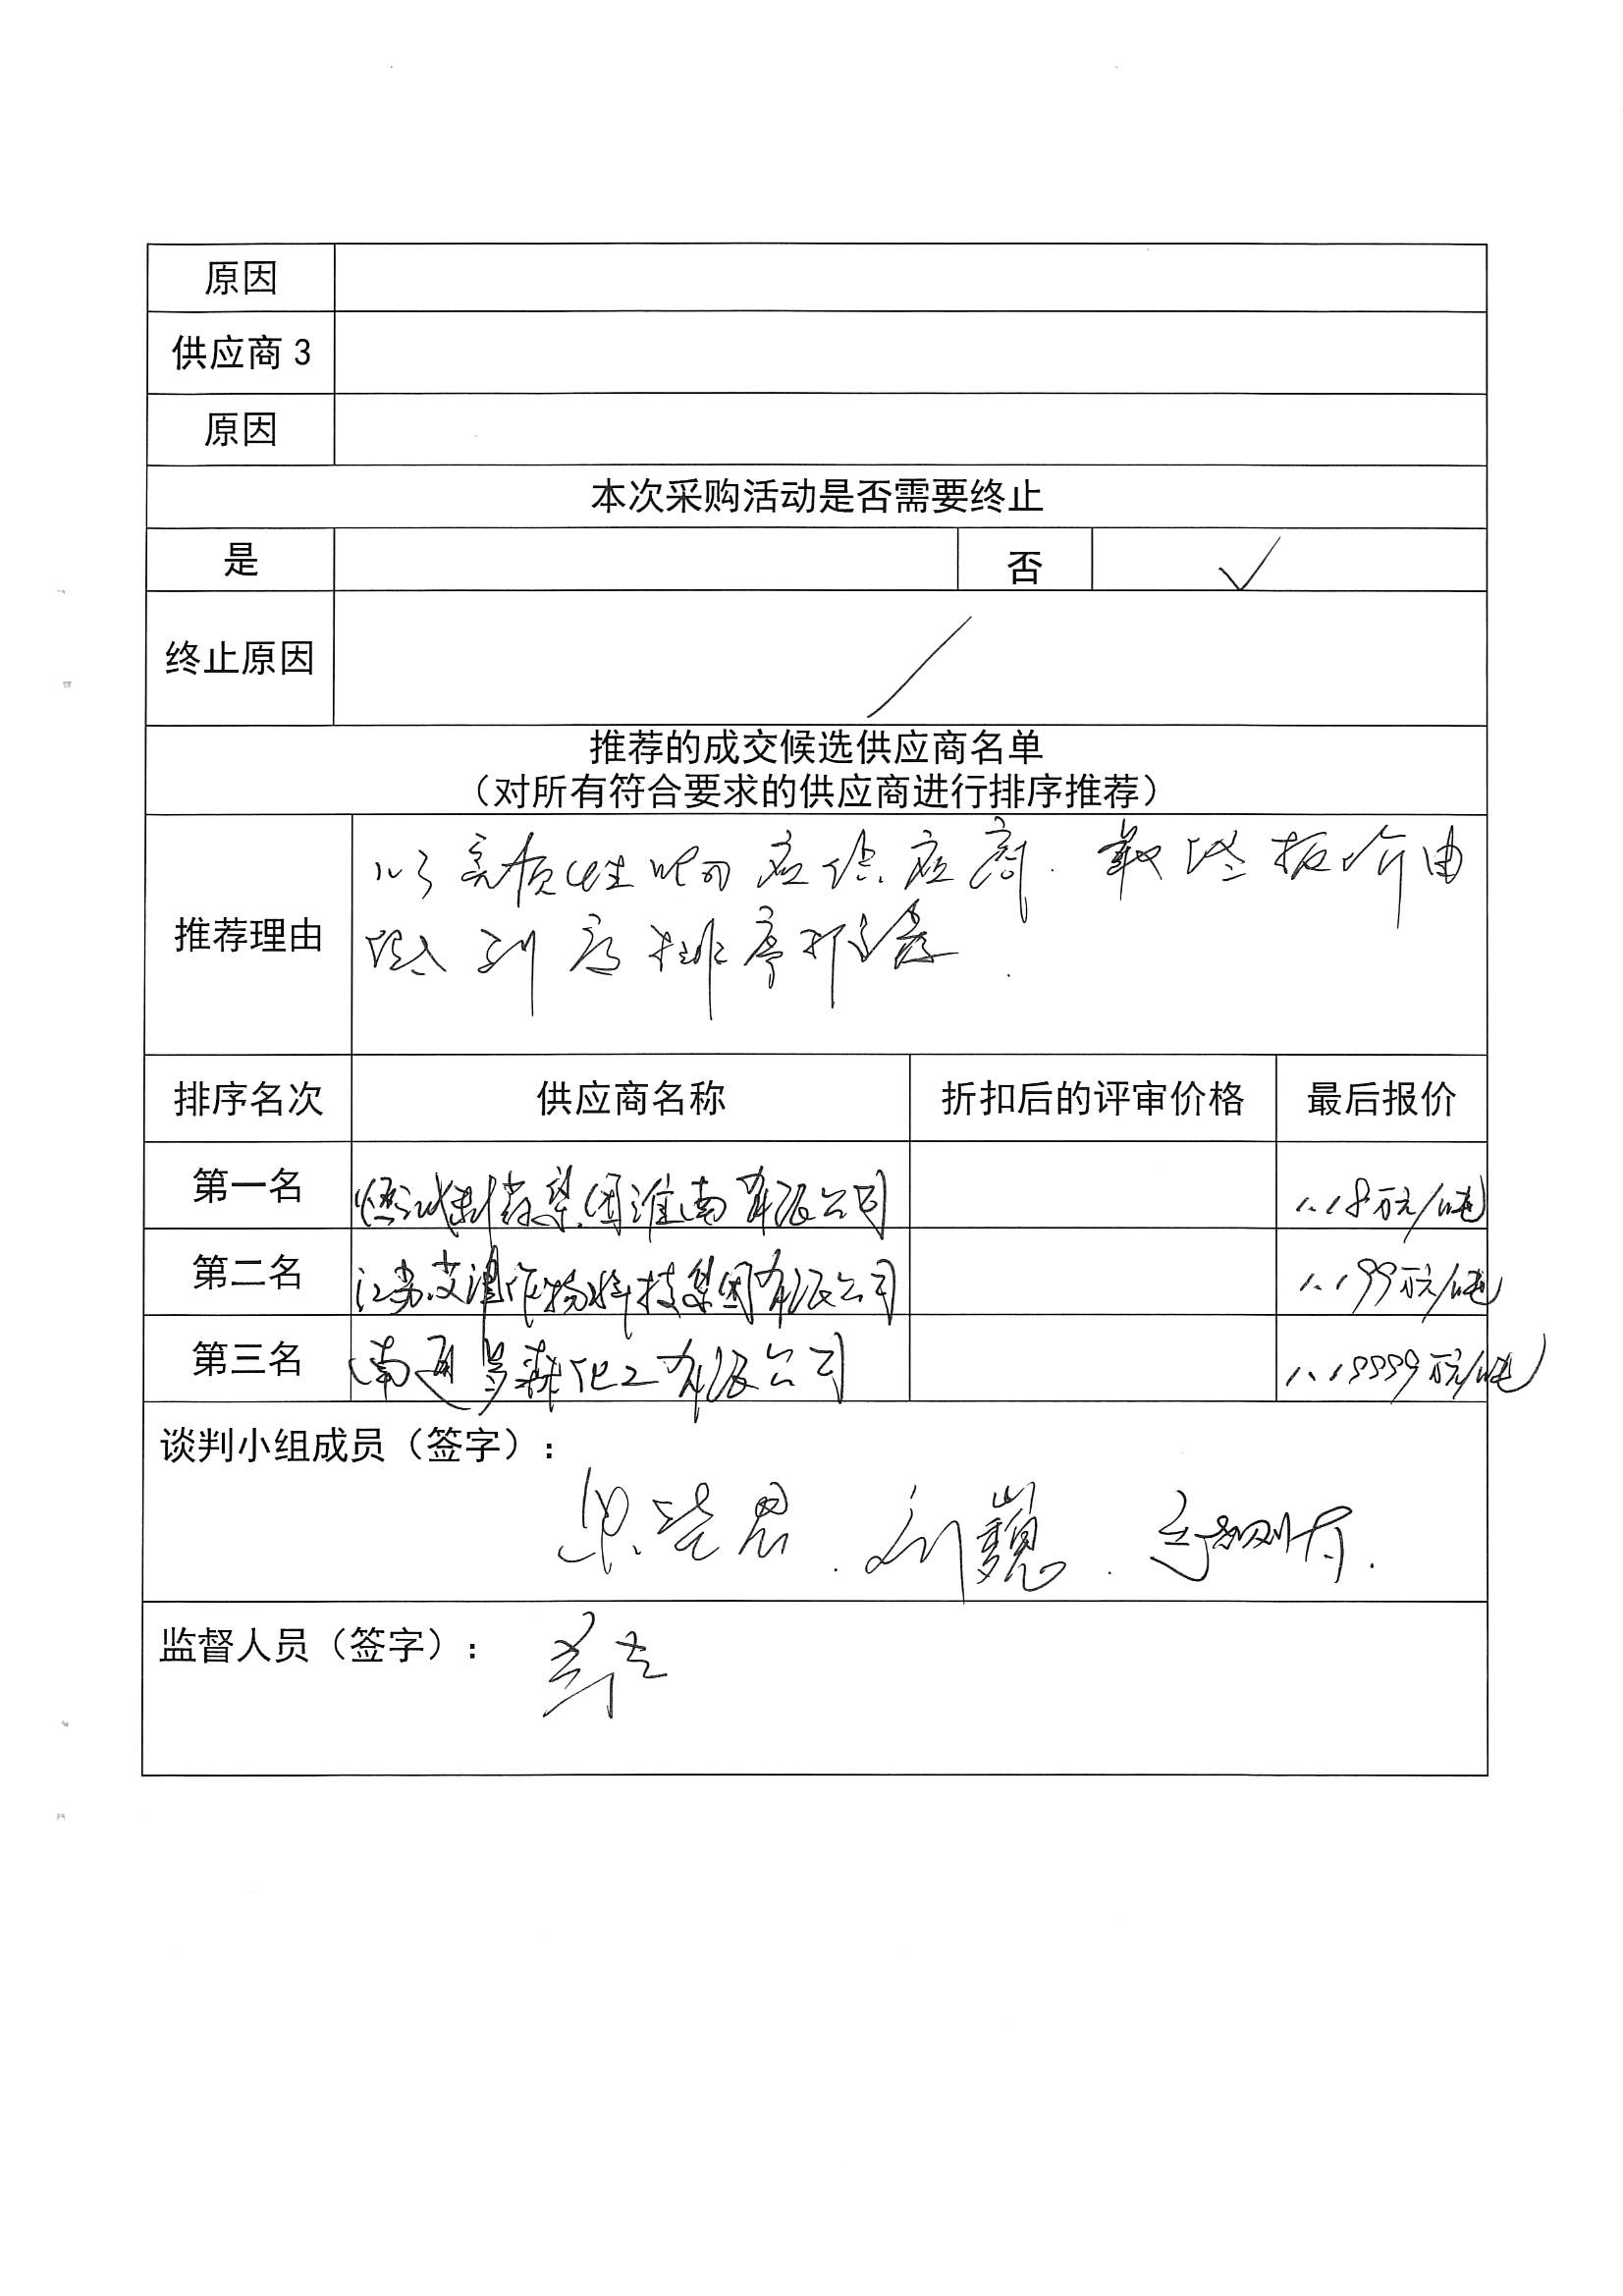 原因
供应商3
原因
本次采购活动是否需要终止
是 否 √
终止原因 /
推荐的成交候选供应商名单
（对所有符合要求的供应商进行排序推荐）
实质性响应供应商 最终报价由
推荐理由
低到高排序推荐
排序名次 供应商名称 折扣后的评审价格 最后报价
第一名 制药集团淮南有限公司 1.18万元/吨
第二名 江苏艾津作物科技集团有限公司 1.199万元/吨
第三名 南通 化工有限公司 1.19999万元/吨
谈判小组成员（签字）：
刘巍
监督人员（签字）：